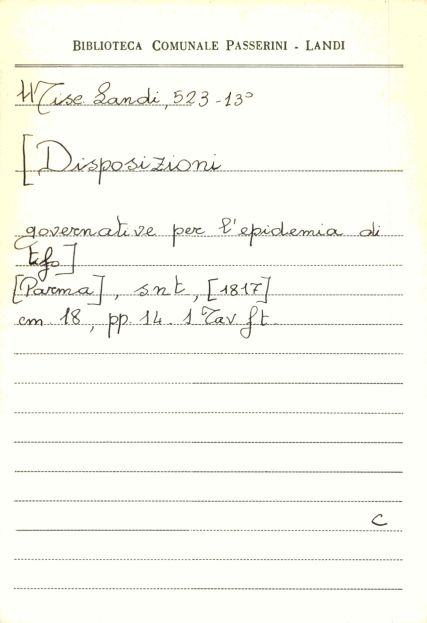 BIBLIOTECA COMUNALE PASSERINI - LANDI
Misc Landi, 523-13°
[Disposizioni
governative per l'epidemia di
tifo]
[Parma], snt, [1817]
cm 18, pp. 14. 1 Tav ft.
C